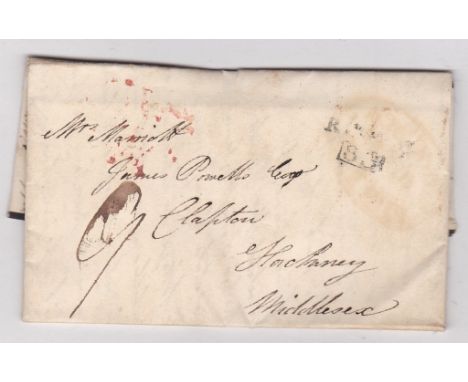 Mrs Marriott
James Powells Esqr
Clapton
Hackney
Middlesex
9